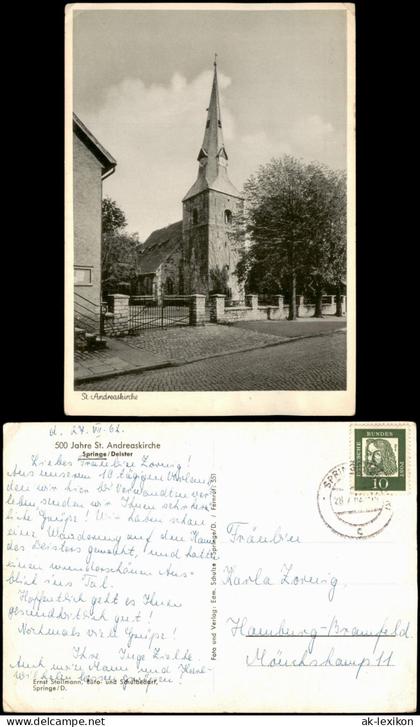 © ak-lexikon
St. Andreaskirche
d. 27. VII. 62.
500 Jahre St. Andreaskirche
Springe/Deister
Liebes Fräulein Zornig!
Aus unserem 10 tägigen Urlaub
den wir hier bei Verwandten ver
leben senden wir Ihnen sehr herz
liche Grüße! Wir haben schon
eine Wanderung auf den Kamm
des Deisters gemacht, und hatte
einen wunderschönen Aus-
blick ins Tal.
Hoffentlich geht es Ihnen
gesundheitlich gut!
Nochmals viele Grüße!
Ihre Inge Zielke
Auch mein Mann und
lassen grüßen!
Ernst Stollmann, Büro- und Schulbedarf,
Springe/D.
Foto und Verlag: Edm. Schulze, Springe/D. / Fernruf 551
DEUTSCHE BUNDESPOST
10
SPRINGE
c
Fräulein
Karla Zornig,
Hamburg-Bramfeld
Mönchskamp 11
© ak-lexikon.com